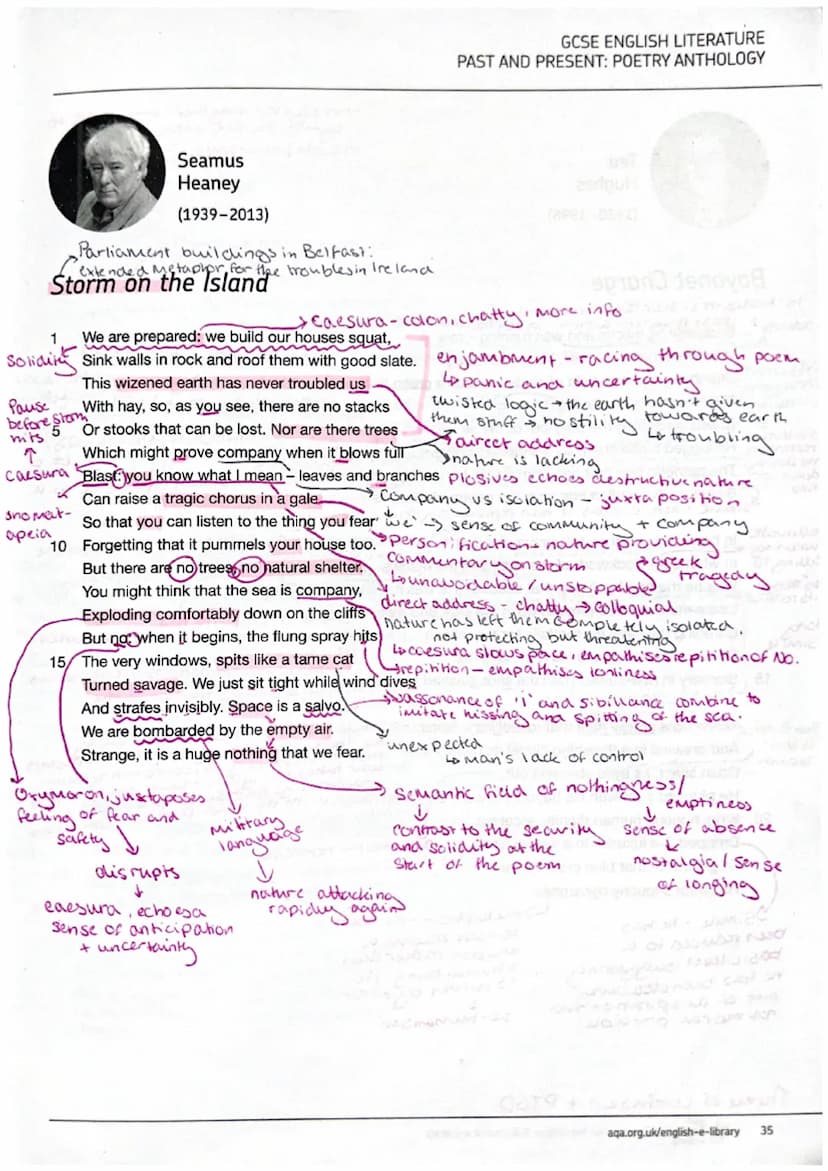 GCSE ENGLISH LITERATURE
PAST AND PRESENT: POETRY ANTHOLOGY
Seamus
Heaney
(1939–2013)
Parliament buildings in Belfast:
extended metaphor for the troubles in Ireland
Storm on the Island
Caesura - colon, chatty, more info
1 We are prepared: we build our houses squat,
Solidity
Sink walls in rock and roof them with good slate.
enjambment - racing through poem
This wizened earth has never troubled us
↳ panic and uncertainty
With hay, so, as you see, there are no stacks
twisted logic → the earth hasn't given
them stuff → hostility towards earth
↳ troubling
Pause
before storm
hits
5 Or stooks that can be lost. Nor are there trees
direct address
Which might prove company when it blows full
nature is lacking
caesura
Blast: you know what I mean – leaves and branches
plosives echoes destructive nature
Can raise a tragic chorus in a gale
Company vs isolation - juxtaposition
onomat-
opeia
So that you can listen to the thing you fear
'we' → sense of community + company
10 Forgetting that it pummels your house too.
personification → nature providing
commentary on storm
greek
tragedy
But there are no trees, no natural shelter.
↳ unavoidable / unstoppable
You might think that the sea is company,
direct address - chatty → colloquial
Exploding comfortably down on the cliffs
nature has left them completely isolated
not protecting but threatening
But no: when it begins, the flung spray hits
↳ caesura slows pace, empathises repitition of No.
15 The very windows, spits like a tame cat
repitition - empathises lonliness
Turned savage. We just sit tight while wind dives
And strafes invisibly. Space is a salvo.
assonance of 'i' and sibillance combine to
imitate hissing and spitting of the sea.
We are bombarded by the empty air.
unexpected
↳ man's lack of control
Strange, it is a huge nothing that we fear.
Oxymoron, juxtaposes
feeling of fear and
safety
disrupts
caesura, echoes a
sense of anticipation
+ uncertainty
military
language
nature attacking
rapidly again
semantic field of nothingness/
emptiness
contrast to the security
and solidity at the
start of the poem
sense of absence
nostalgia / sense
of longing
aqa.org.uk/english-e-library 35